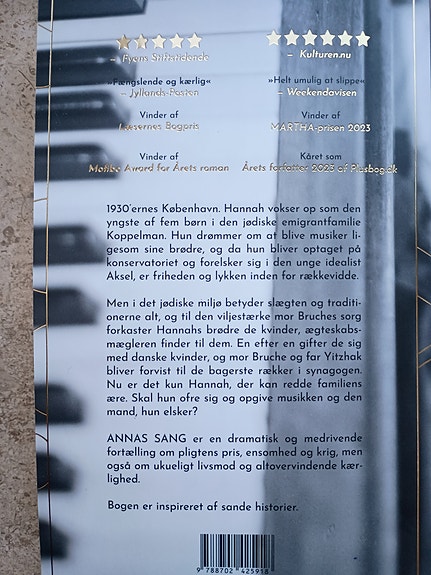 – Fyens Stiftstidende
– Kulturen.nu
»Fængslende og kærlig«
– Jyllands-Posten
»Helt umulig at slippe«
– Weekendavisen
Vinder af
Læsernes Bogpris
Vinder af
MARTHA-prisen 2023
Vinder af
Mofibo Award for Årets roman
Kåret som
Årets forfatter 2023 af Plusbog.dk
1930'ernes København. Hannah vokser op som den
yngste af fem børn i den jødiske emigrantfamilie
Koppelman. Hun drømmer om at blive musiker li-
gesom sine brødre, og da hun bliver optaget på
konservatoriet og forelsker sig i den unge idealist
Aksel, er friheden og lykken inden for rækkevidde.
Men i det jødiske miljø betyder slægten og traditi-
onerne alt, og til den viljestærke mor Bruches sorg
forkaster Hannahs brødre de kvinder, ægteskabs-
mægleren finder til dem. En efter en gifter de sig
med danske kvinder, og mor Bruche og far Yitzhak
bliver forvist til de bagerste rækker i synagogen.
Nu er det kun Hannah, der kan redde familiens
ære. Skal hun ofre sig og opgive musikken og den
mand, hun elsker?
ANNAS SANG er en dramatisk og medrivende
fortælling om pligtens pris, ensomhed og krig, men
også om ukueligt livsmod og altovervindende kær-
lighed.
Bogen er inspireret af sande historier.
9 788702 425918